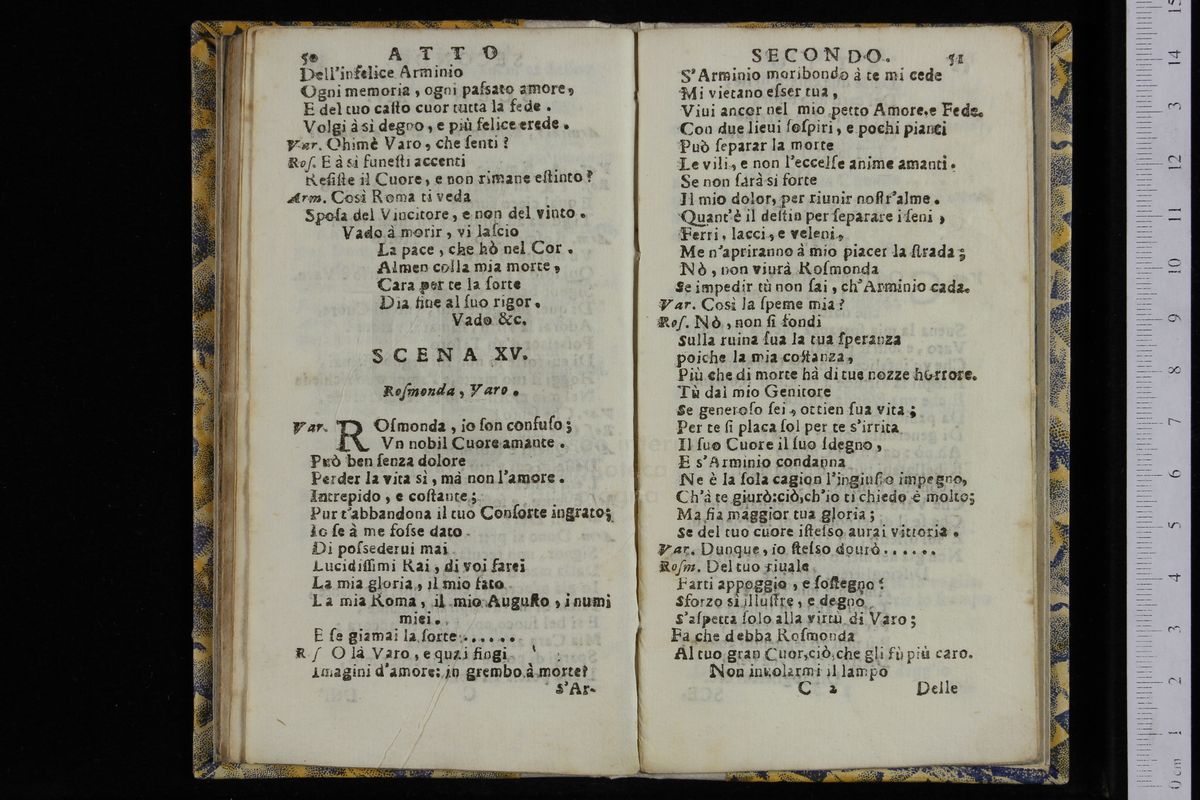 50 ATTO
Dell'infelice Arminio
Ogni memoria, ogni paſsato amore,
E del tuo caſto cuor tutta la fede.
Volgi à sì degno, e più felice erede.
Var. Ohimè Varo, che ſenti?
Roſ. E à si funeſti accenti
Reſiſte il Cuore, e non rimane eſtinto?
Arm. Così Roma ti veda
Spoſa del Vincitore, e non del vinto.
Vado à morir, vi laſcio
La pace, che hò nel Cor.
Almen colla mia morte,
Cara per te la ſorte
Dia fine al ſuo rigor.
Vado &c.
SCENA XV.
Roſmonda, Varo.
Var. ROſmonda, io ſon confuſo;
Vn nobil Cuore amante.
Può ben ſenza dolore
Perder la vita si, mà non l'amore.
Intrepido, e coſtante;
Pur t'abbandona il tuo Conſorte ingrato;
Io ſe à me foſse dato
Di poſsederui mai
Lucidiſſimi Rai, di voi farei
La mia gloria, il mio fato
La mia Roma, il mio Auguſto, i numi
miei.
E ſe giamai la ſorte......
R ſ O là Varo, e quai fingi
Imagini d'amore: in grembo à morte?
S'Ar-
SECONDO. 51
S'Arminio moribondo à te mi cede
Mi vietano eſser tua,
Viui ancor nel mio petto Amore, e Fede.
Con due lieui ſoſpiri, e pochi pianti
Può ſeparar la morte
Le vili, e non l'eccelſe anime amanti.
Se non ſarà si forte
Il mio dolor, per riunir noſtr'alme.
Quant'è il deſtin per ſeparare i ſeni,
Ferri, lacci, e veleni,
Me n'apriranno à mio piacer la ſtrada;
Nò, non viurà Roſmonda
Se impedir tù non ſai, ch'Arminio cada.
Var. Così la ſpeme mia?
Roſ. Nò, non ſi fondi
Sulla ruina ſua la tua ſperanza
poiche la mia coſtanza,
Più che di morte hà di tue nozze horrore.
Tù dal mio Genitore
Se generoſo ſei, ottien ſua vita;
Per te ſi placa ſol per te s'irrita
Il ſuo Cuore il ſuo ſdegno,
E s'Arminio condanna
Ne è la ſola cagion l'ingiuſto impegno,
Ch'à te giurò: ciò, ch'io ti chiedo è molto;
Ma fia maggior tua gloria;
Se del tuo cuore iſteſso aurai vittoria.
Var. Dunque, io ſteſso dourò......
Roſm. Del tuo riuale
Farti appoggio, e ſoſtegno?
Sforzo si illuſtre, e degno
S'aſpetta ſolo alla virtù di Varo;
Fa che debba Roſmonda
Al tuo gran Cuor, ciò, che gli fù più caro.
Non involarmi il lampo
C 2 Delle